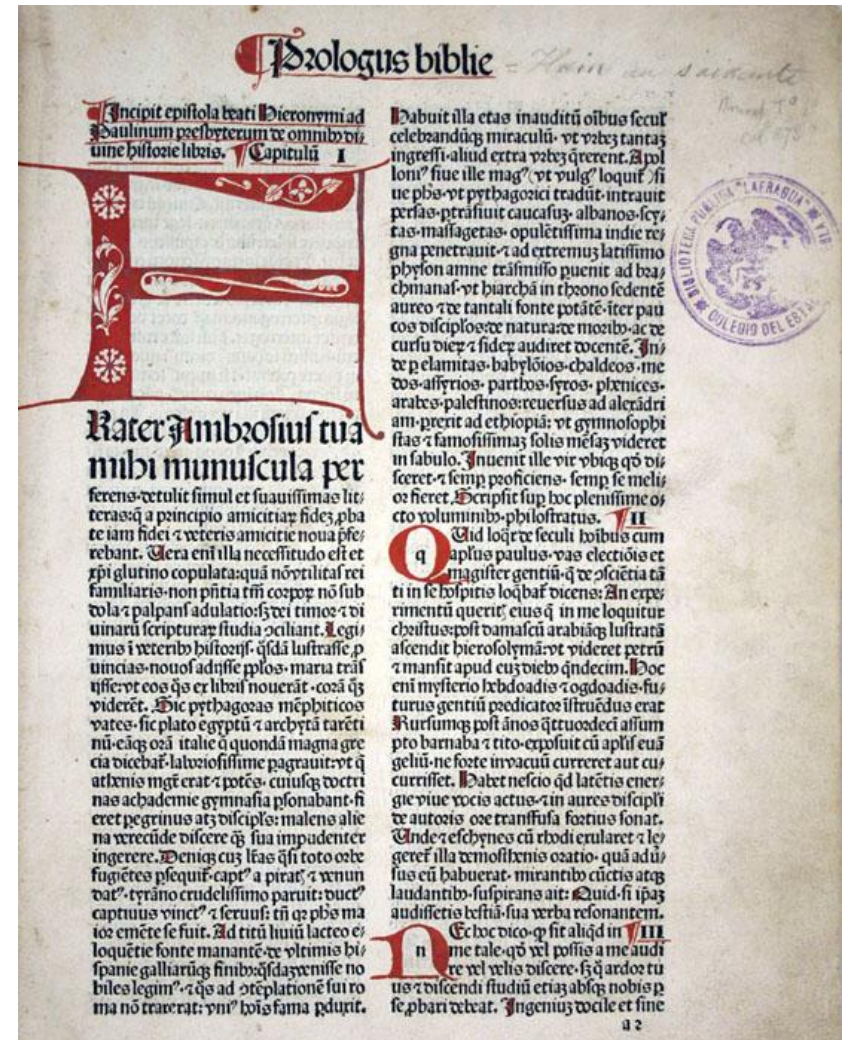 Prologus biblie
Incipit epistola beati Hieronymi ad
Paulinum presbyterum de omnibꝰ di⸗
uine historie libris. ¶ Capitulū I
FRater Ambrosius tua
mihi munuscula per
ferens·detulit simul et suauissimas lit⸗
teras:q̄ a principio amicitiaꝝ fidez ꝓba
te iam fidei ⁊ veteris amicitie noua p̄fe⸗
rebant. Uera eni̅ illa necessitudo est et
xp̄i glutino copulata:quā nō vtilitas rei
familiaris·non pn̄tia tm̄ corpoꝝ nō sub
dola ⁊ palpans adulatio:sꝫ dei timor ⁊ di
uinarū scripturaꝝ studia ꝯciliant. Legi⸗
mus ī veteribꝰ historijs· q̄sdā lustrasse ꝓ
uincias·nouos adijsse pp̄los·maria trās
ijsse:vt eos q̄s ex libris nouerāt·corā qꝫ
viderēt. Sic pythagoras mēphiticos
vates·sic plato egyptū ⁊ archytā tarēti
nū·eāqꝫ orā italie q̄ quondā magna gre
cia dicebat᷑·laboriosissime ꝑagrauit:vt q̄
athenis mgr̄ erat ⁊ potēs·cuiusqꝫ doctri
nas achademie gymnasia ꝑsonabant·fi
eret ꝑegrinus atqꝫ discipl̄s:malens alie
na verecūde discere qꝫ sua impudenter
ingerere. Deniqꝫ cuꝫ lr̄as q̄si toto orbe
fugiētes ꝑsequit᷑·captꝰ a piratꝭ ⁊ venun
datꝰ·tyrāno crudelissimo paruit:ductꝰ
captiuus vinctꝰ ⁊ seruus:tn̄ qꝛ ph̄s ma
ior emēte se fuit. Ad titū liuiū lacteo e⸗
loquētie fonte manantē·de vltimis hi⸗
spanie galliarūqꝫ finibꝰ q̄sdaꝫ venisse no
biles legimꝰ·⁊ q̄s ad ꝯtēplationē sui ro
ma nō traxerat: vniꝰ hoīs fama ꝑduxit.
Habuit illa etas inauditū oībus secul᷑
celebrandūqꝫ miraculū·vt vrbeꝫ tantaꝫ
ingressi·aliud extra vrbeꝫ q̄rerent. Apol
loniꝰ siue ille magꝰ (vt vulgꝰ loquit᷑) si
ue ph̄s·vt pythagorici tradūt·intrauit
persas·ꝑtrāsiuit caucasuꝫ·albanos·scy⸗
tas·massagetas·opulētissima indie re⸗
gna penetrauit·⁊ ad extremuꝫ latissimo
physon amne trāsmisso ꝑuenit ad bra⸗
chmanas·vt hiarchā in throno sedentē
aureo ⁊ de tantali fonte potātē·īter pau
cos discipl̄os:de natura:de moribꝰ·ac de
cursu dieꝝ ⁊ sideꝝ audiret docentē. In⸗
de ꝑ elamitas·babylōios·chaldeos·me
dos·assyrios·parthos·syros·phenices·
arabes·palestinos:reuersus ad alexādri
am·ꝑrexit ad ethiopiā: vt gymnosophi
stas ⁊ famosissimaꝫ solis mēsaꝫ videret
in sabulo. Inuenit ille vir vbiqꝫ qd̄ di⸗
sceret·⁊ semꝑ proficiens·semꝑ se meli⸗
or fieret. Scripsit suꝑ hoc plenissime o⸗
cto voluminibꝰ·philostratus. ¶ II
QUid loqr̄ de seculi hoībus cum
q apl̄us paulus·vas electiōis et
magister gentiū·q̄ de ꝯsciētia tā
ti in se hospitis loq̄bat᷑ dicens: An expe⸗
rimentū queritꝭ eius q̄ in me loquitur
christus:post damascū arabiāqꝫ lustratā
ascendit hierosolymā:vt videret petrū
⁊ mansit apud euꝫ diebꝰ q̄ndecim. Hoc
eni̅ mysterio hebdoadis ⁊ ogdoadis·fu⸗
turus gentiū predicator īstruēdus erat
Rursumqꝫ post ānos q̄ttuordecī assum
pto barnaba ⁊ tito·exposuit cū apl̄is euā
geliū·ne forte invacuū curreret aut cu⸗
currisset. Habet nescio qd̄ latētis ener⸗
gie viue vocis actus·⁊ in aures discipl̄i
de autoris ore transfusa fortius sonat.
Unde ⁊ eschynes cū rhodi exularet ⁊ le⸗
geret᷑ illa demosthenis oratio·quā aduꝭ
sus eū habuerat·mirantibꝰ cūctis atqꝫ
laudantibꝰ·suspirans ait: Quid·si ip̄aꝫ
audissetis bestiā·sua verba resonantem.
NEc hoc dico·ꝙ sit aliqd̄ in ¶ III
n me tale·qd̄ vel possis a me audi
re vel velis discere·sꝫ q̄ ardor tu
us ⁊ discendi studiū etiaꝫ absqꝫ nobis ꝑ
se ꝓbari debeat. Ingeniuꝫ docile et sine
a 2
BIBLIOTECA PUBLICA "LAFRAGUA"
COLEGIO DEL